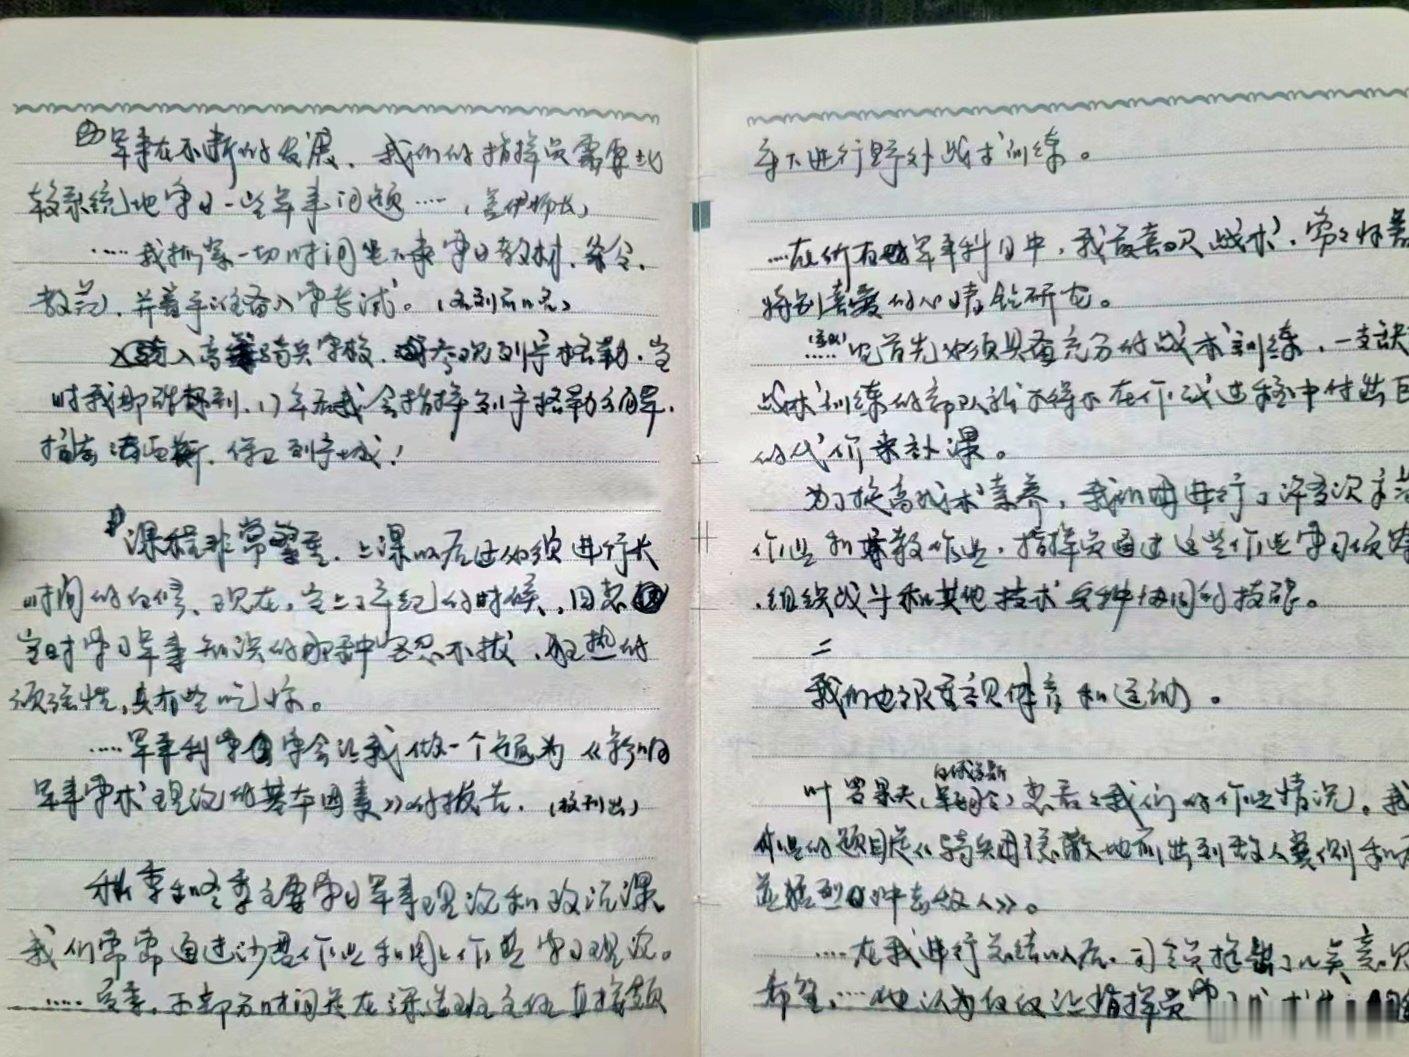 军事在不断的发展，我们的指挥员需要比
较系统地学习一些军事问题……（盖伊师长）
……我抓紧一切时间 学习教材、条令、
教范，并着手准备入学考试。（名列前
入高等骑兵学校，参观列宁格勒，当
时我那能想到，17年后我会指挥列宁格勒方面军，
保卫列宁城！
课程非常繁重，上课以后还必须进行长
时间的自修，现在，当上了年纪的时候，回想
当时学习军事知识的那种坚忍不拔、狂热的
顽强性，真有些吃惊。
……军事科学学会让我做一个题为《影响
军事学术理论的基本因素》的报告。（被刊出）
秋季和冬季主要学习军事理论和政治课。
我们常常通过沙盘作业和图上作业学习理论。
……夏季，大部分时间是在课 班主任直接领
导下进行野外战术训练。
……在所有的军事科目中，我最喜欢战术，常常怀着
特别喜爱的心情钻研它。
首先必须具备充分的战术训练，一支缺
战术训练的部队就不得不在作战过程中付出巨
的代价来补课。
为了提高战术素养，我们曾进行了许多次
作业和 教作业，指挥员通过这些作业学习
组织战斗和其他技术兵种协同的技能。
二
我们也很重视体育和运动。
白俄罗斯
叶罗果夫（军 司令）想看看我们的作业情况。我
作业的题目是《骑兵团隐蔽地前出到敌人翼侧和
并猛烈的冲击敌人》。
……在我进行总结以后，司令员提出了意见
希望，……他认为仅仅让指挥员